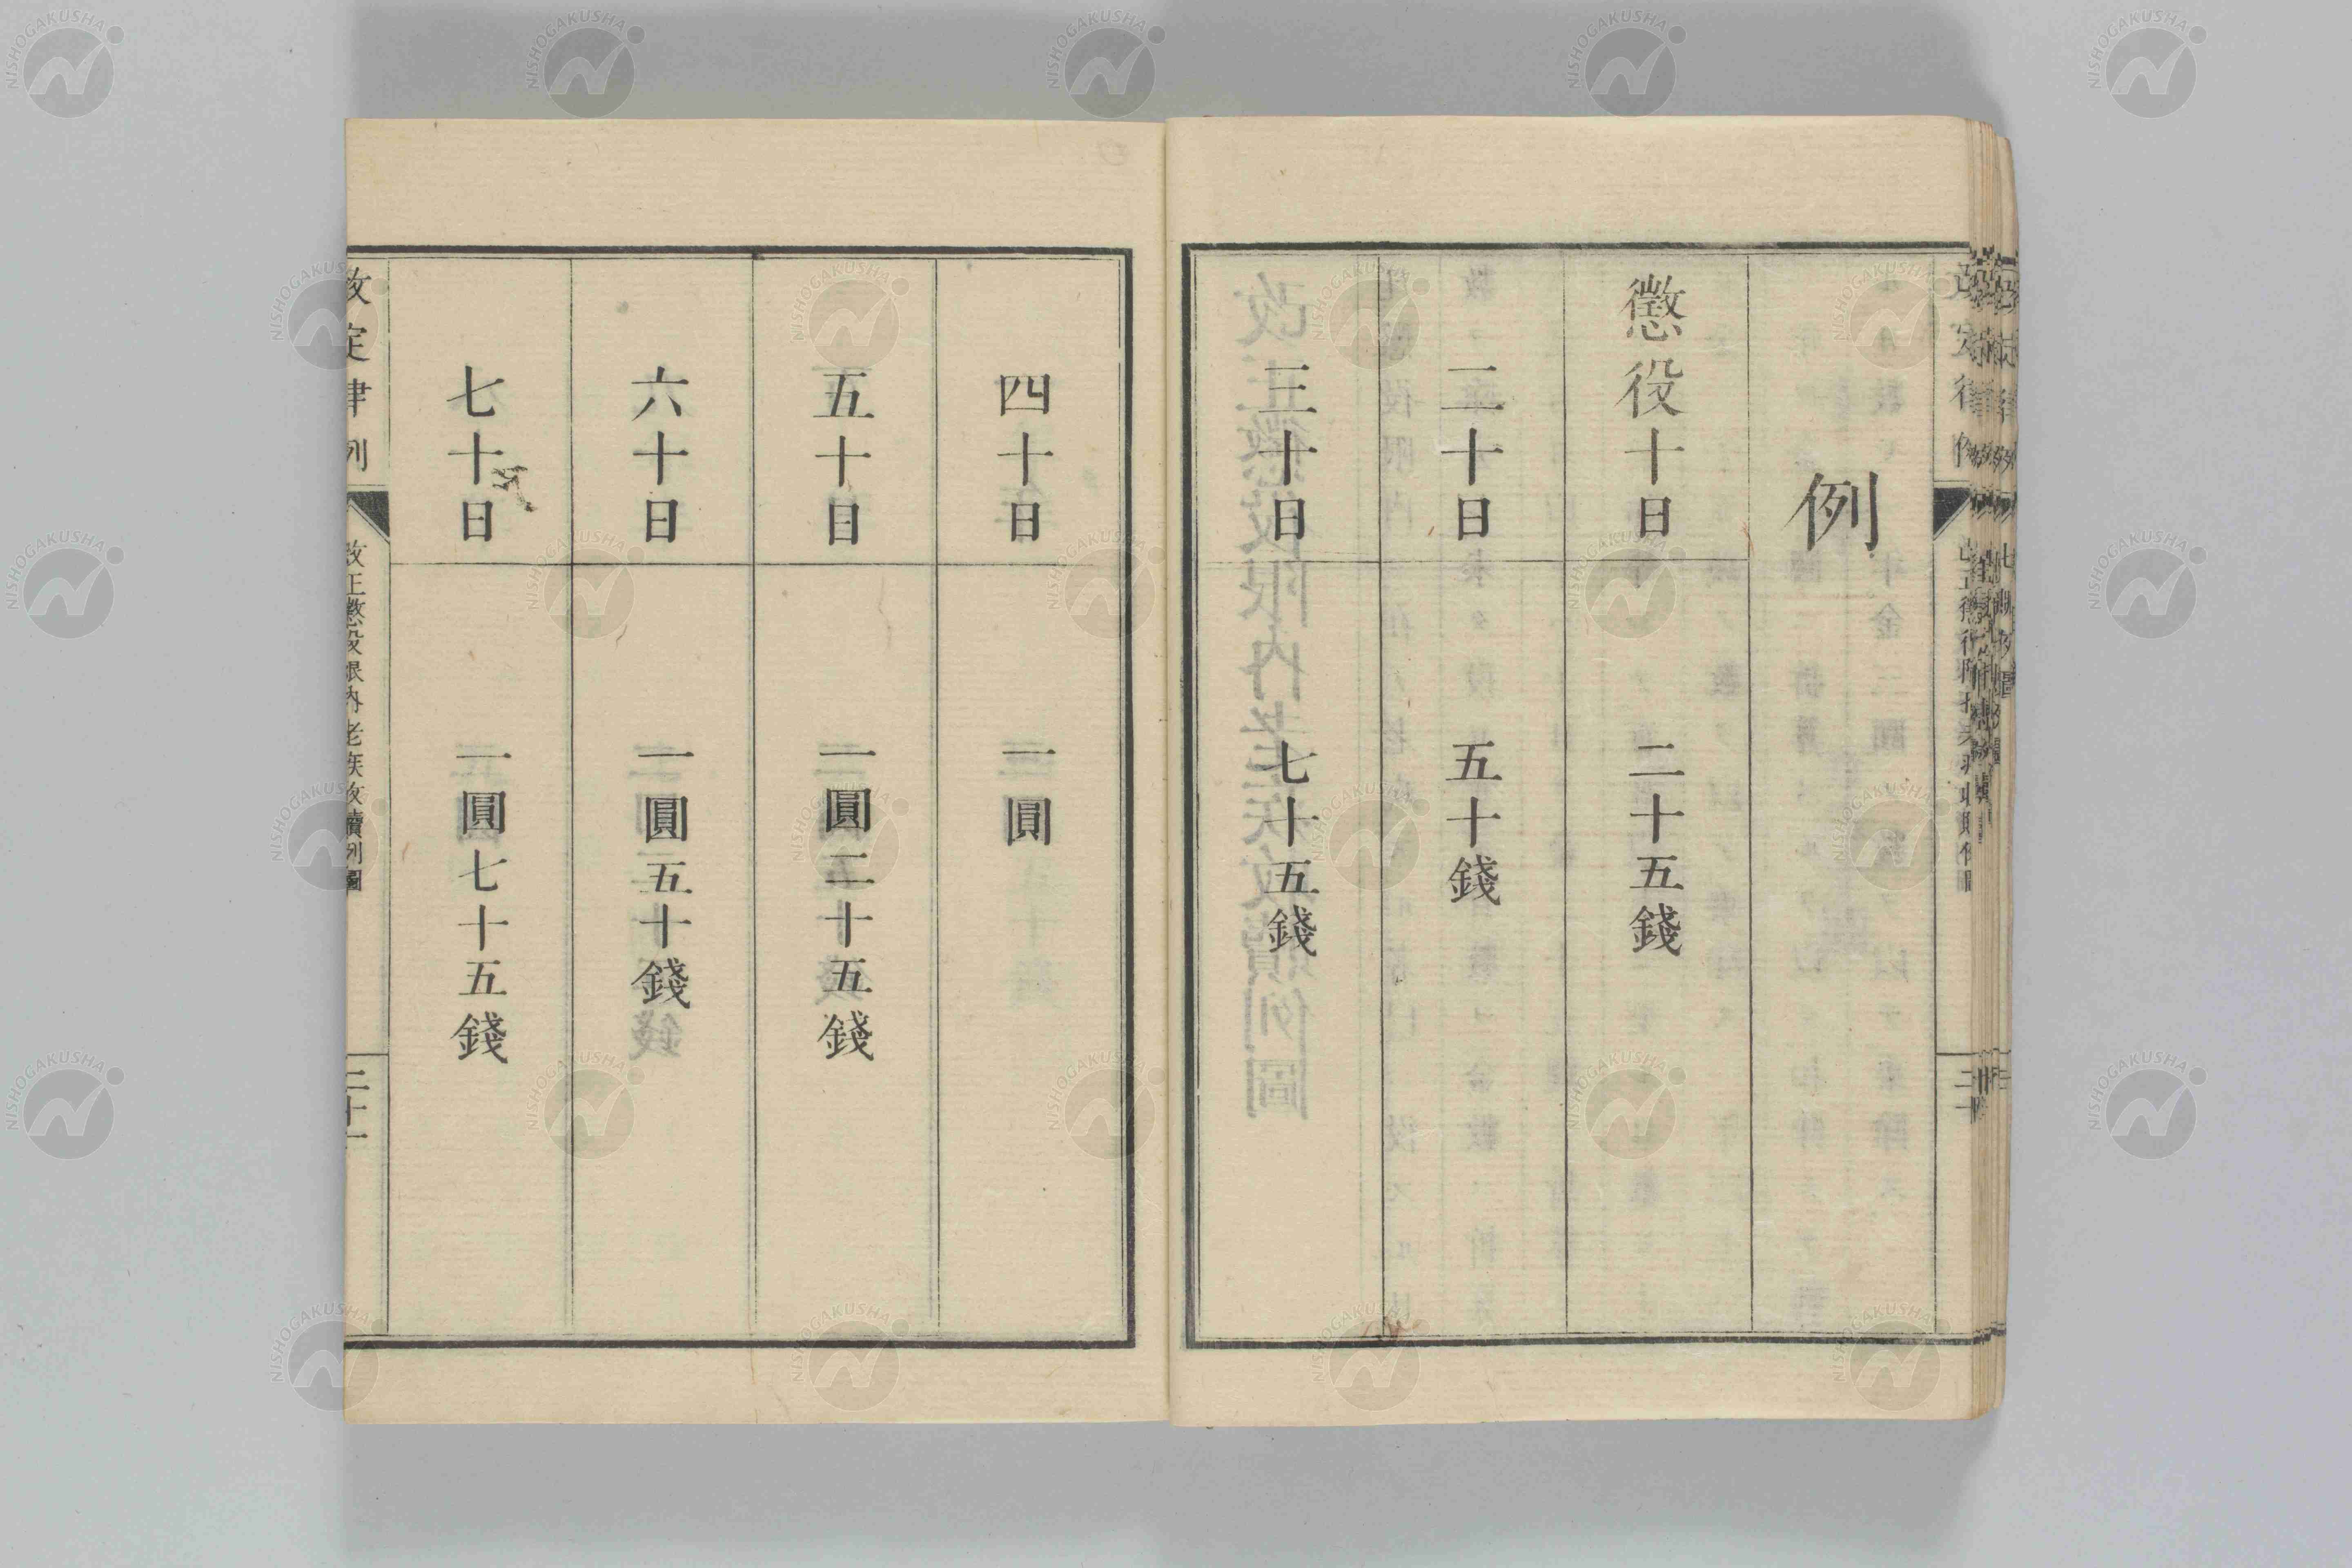 例
懲役十日
二十五錢
二十日
五十錢
三十日
七十五錢
四十日
一圓
五十日
一圓二十五錢
六十日
一圓五十錢
七十日
一圓七十五錢
改定律例
改正懲役限內老疾收贖例圖
二十一
NISHOGAKUSHA